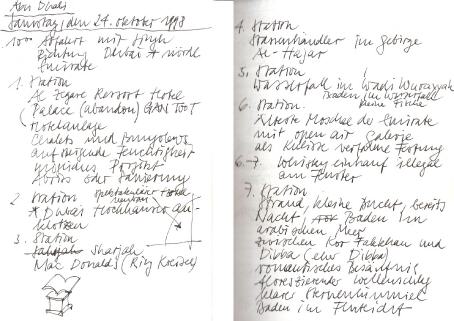 Abu Dhabi
Samstag, den 24. Oktober 1998
10⁰⁰ Abfahrt mit
Richtung Dubai + nördl.
Emirate
1. Station
Al Jazira Ressort Hotel
(Palace (abandon) GAN TOOT
Hotelanlage
Chalets und Bungalows
aufsteigende Feuchtigkeit
Abriss oder Sanierung
2. Station spektakulärer Hotel
neubau
* Dubai Hochhäuser an-
klotzen
3. Station
Sharjah
Mac Donalds (Ring Kreisel)
4. Station
Steinehändler im Gebirge
Al-Hajar
5. Station
Wasserfall im Wadi Wurayyah
Baden im Wasserfall
kleine Fische
6. Station
Älteste Moschee der Emirate
mit open air Galerie
als Kulisse verfallene Festung
6.-7. Whisky einkauf illegal
am Fenster
7. Station
Strand, kleine Bucht, bereits
Nacht, Baden im
arabischen Meer
zwischen Kor Fakkhan und
Dibba (eher Dibba)
romantisches Besäufnis
fluoreszierender Wellenschlag
klarer Sternenhimmel
Baden im